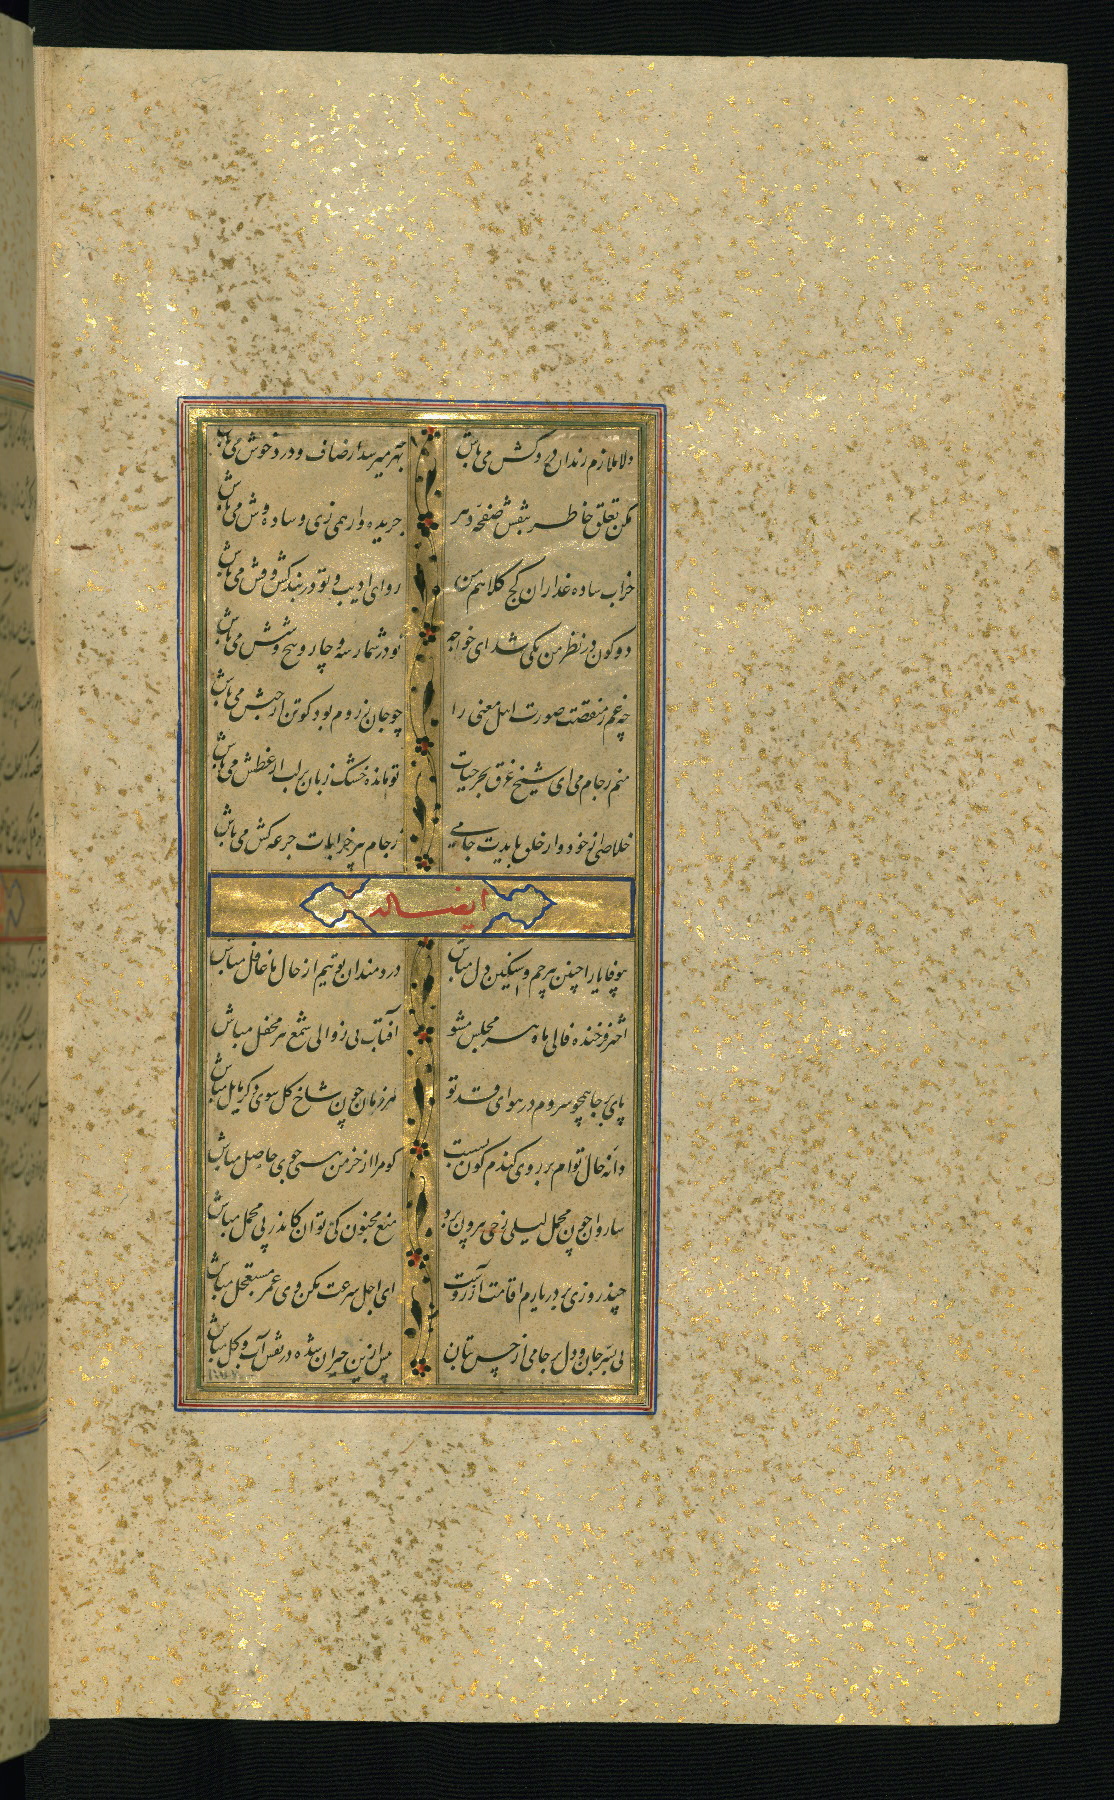 دلا ملازم رندان دردکش می‌باش
بهر چه میرسد از صاف و درد خوش می‌باش
مکن تعلق خاطر بنقش صفحهٔ دهر
جریده وار همی زی و ساده وش می‌باش
خراب ساده عذاران کج کلاهم من
رو ای ادیب و تو در بند کش و فش می‌باش
دو کون در نظر من یکی شد ای خواجه
تو در شمار سه و چار و پنج و شش می‌باش
چه غم ز منقصت صورت اهل معنی را
چو جان ز روم بود گو تن از حبش می‌باش
منم ز جام می ای شیخ غرق بحر حیات
تو مانده خشک زبان بر لب از عطش می‌باش
خلاصی از خود و از خلق بایدت جامی
ز جام پیر خرابات جرعه کش می‌باش
ایضاله
بیوفا یارا چنین بیرحم و سنگین دل مباش
دردمندان توییم از حال ما غافل مباش
اختر فرخنده فالی ماه هر مجلس مشو
آفتاب بی زوالی شمع هر محفل مباش
پای بر جا همچو سروم در هوای قد تو
هر زمان چون شاخ گل سوی دگر مایل مباش
دانهٔ خال توام بر روی گندم گون بست
گو مرا از خرمن هستی جوی حاصل مباش
ساروان چون محمل لیلی ز حی بیرون برد
منع مجنون کی توان کاندر پی محمل مباش
چند روزی بر در یارم اقامت آرزوست
ای اجل سرعت مکن وی عمر مستعجل مباش
بی بتر جان و دل بر جامی از چین بتان
پس ازین حیران شده در نقش آب و گل مباش